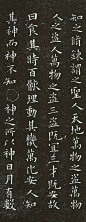 知之脩鍊謂之聖人天地萬物之盜萬物
人之盜人萬物之盜三盜既宜三才既安故
曰食其時百骸理動其機萬化安人知
其神而神不知〇神之所以神日月有數